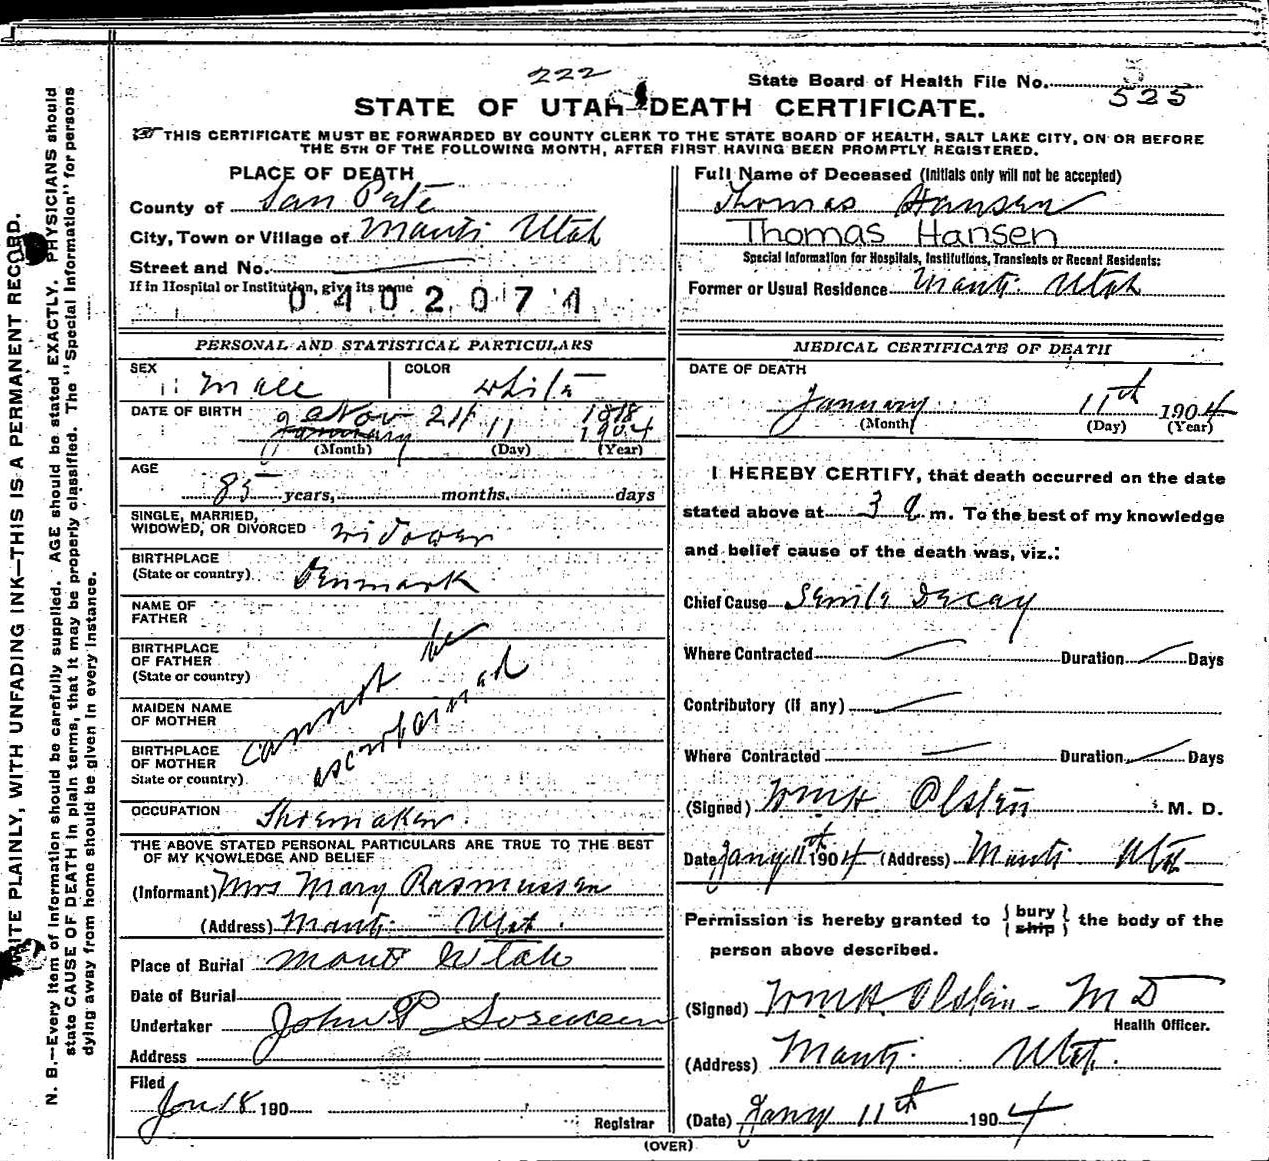 222
State Board of Health File No. 525
STATE OF UTAH DEATH CERTIFICATE.
THIS CERTIFICATE MUST BE FORWARDED BY COUNTY CLERK TO THE STATE BOARD OF HEALTH, SALT LAKE CITY, ON OR BEFORE
THE 5TH OF THE FOLLOWING MONTH, AFTER FIRST HAVING BEEN PROMPTLY REGISTERED.
PLACE OF DEATH
County of San Pete
City, Town or Village of Manti Utah
Street and No.
If in Hospital or Institution, give its name
0402071
Full Name of Deceased (Initials only will not be accepted)
Thomas Hansen
Thomas Hansen
Special Information for Hospitals, Institutions, Transients or Recent Residents:
Former or Usual Residence Manti Utah
PERSONAL AND STATISTICAL PARTICULARS
SEX Male COLOR White
DATE OF BIRTH Nov 24 1818
January 11 1904
(Month) (Day) (Year)
AGE
85 years, months. days
SINGLE, MARRIED,
WIDOWED, OR DIVORCED Widower
BIRTHPLACE
(State or country) Denmark
NAME OF
FATHER
BIRTHPLACE
OF FATHER
(State or country)
MAIDEN NAME
OF MOTHER
BIRTHPLACE
OF MOTHER
State or country)
cannot be
ascertained
OCCUPATION Shoemaker.
THE ABOVE STATED PERSONAL PARTICULARS ARE TRUE TO THE BEST
OF MY KNOWLEDGE AND BELIEF
(Informant) Mrs Mary Rasmussen
(Address) Manti Utah.
Place of Burial Manti Utah
Date of Burial
Undertaker John P Sorensen
Address
Filed
Jan 18 190
Registrar
MEDICAL CERTIFICATE OF DEATH
DATE OF DEATH
January 11th 1904
(Month) (Day) (Year)
I HEREBY CERTIFY, that death occurred on the date
stated above at 3 a m. To the best of my knowledge
and belief cause of the death was, viz.:
Chief Cause Senile Decay
Where Contracted Duration Days
Contributory (if any)
Where Contracted Duration Days
(Signed) Wm H Olsten M. D.
Date Jany 11th 1904 (Address) Manti Utah
Permission is hereby granted to {bury
ship} the body of the
person above described.
(Signed) Wm H. Olsten M D
Health Officer.
(Address) Manti. Utah.
(Date) Jany 11th 1904
(OVER)
WRITE PLAINLY, WITH UNFADING INK—THIS IS A PERMANENT RECORD.
N. B.—Every item of information should be carefully supplied. AGE should be stated EXACTLY. PHYSICIANS should
state CAUSE OF DEATH in plain terms, that it may be properly classified. The "Special Information" for persons
dying away from home should be given in every instance.